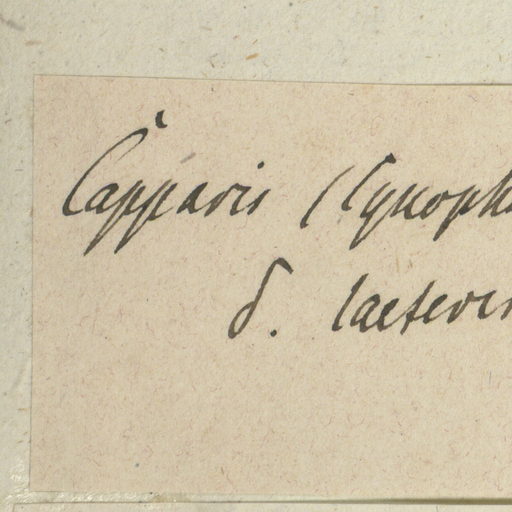 Capparis (Cynoph
δ. laetevir